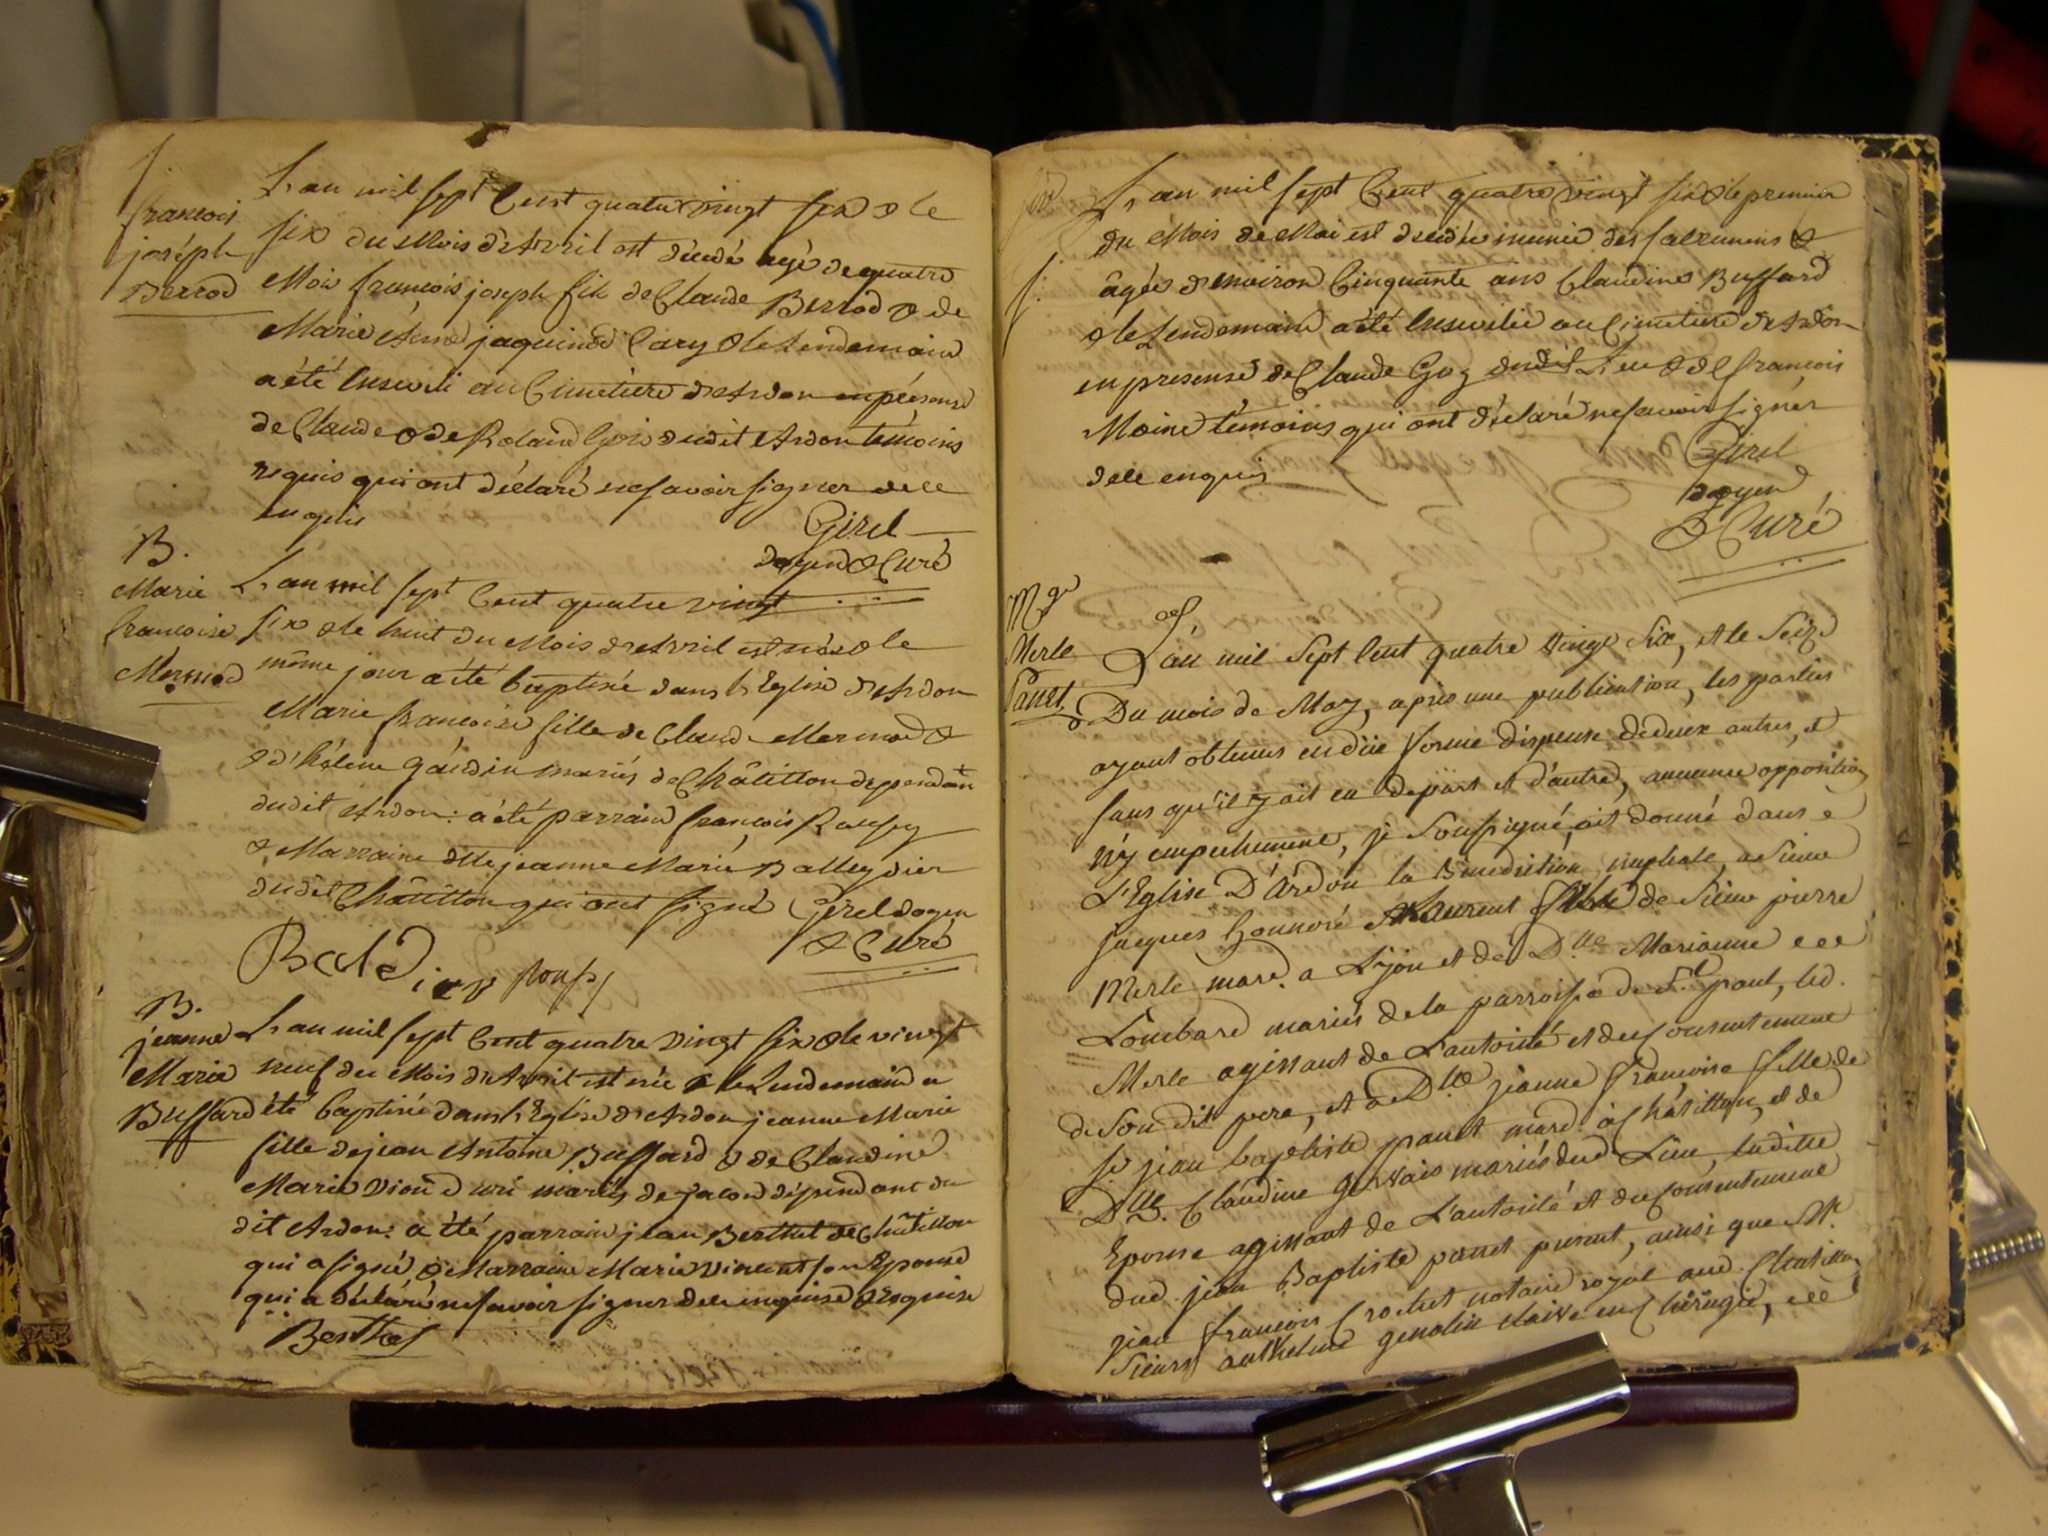 f.
françois
joséph
Berrod
L'an mil sept Cent quatre vingt six & le
six du Mois d'Avril est décédé agé de quatre
Mois françois joseph fils de Claude Berrod & de
Marie Anne jaquinod Cary & le Lendemain
a été Enseveli au Cimetière d'Ardon en présense
de Claude & de Roland Goi dudit Ardon témoins
requis qui ont déclaré ne savoir signer de ce
enquis
Girel
doyen & Curé
B.
Marie
françoise
Mermod
L'an mil sept Cent quatre vingt
six & le huit du Mois d'Avril est née & le
même jour a été baptisée dans L'Eglise d'Ardon
Marie françoise fille de Claude Mermod &
& d'héleine gaudin mariés de Châtillon dependant
dudit Ardon: a été parrain françois
& Marraine dlle jeanne Marie Balleydier
dudit Châtillon qui ont signé Girel doyen
& Curé
B.
jeanne
Marie
Buffard
L'an mil sept Cent quatre vingt six & le vingt
neuf du Mois d'Avril est née & le Lendemain a
été baptisée dans L'Eglise d'Ardon jeanne Marie
fille de jean Antoine Buffard & de Claudine
Marie mariés de dépendant du
dit Ardon: a été parrain jean Berthet de Châtillon
qui a signé & Marraine Marie vincent son Epouse
qui a déclaré ne savoir signer de ce enquise & requise
Berthet
f.
L'an mil sept Cent quatre vingt six & le premier
du Mois de Mai est décédée munie des sacremens &
âgée d'environ Cinquante ans Claudine Buffard
& le Lendemain a été Ensevelie au Cimetière d'Ardon
en presense de Claude Goy dudit Lieu & de françois
Moine témoins qui ont déclaré ne savoir signer
de ce enquis
Girel
doyen
& Curé
Mge
Merle
Panet
L'an mil Sept Cent quatre vingt Six, et le Seize
Du mois de May, après une publication, les parties
ayant obtenus en düe forme dispense de deux autres, et
sans qu'il y ait eu depart et d'autre, aucune opposition
n'y empechement, je Soussigné, ait donné dans
L'Eglise D'Ardon la Benediction nuptiale, a Sieur
jacques honnoré Laurent fils de Sieur pierre
Merle mard. a Lyon et de Dlle Marianne
Lombard mariés de la parroisse de St. paul, led.
Merle agissant de L'autorité et du Consentement
de Son dit pere, et a Dlle jeanne françoise fille de
Sr. jean baptiste panet mard. à Châtillon, et de
Dlle. Claudine Gervais mariés dud. Lieu, laditte
Epouse agissant de L'autorité et du Consentement
dud. jean Baptiste panet present, ainsi que Mr.
jean françois Crochet notaire royal aud. Chatillon
Sieurs anthelme genolin elaive en Chirugie,